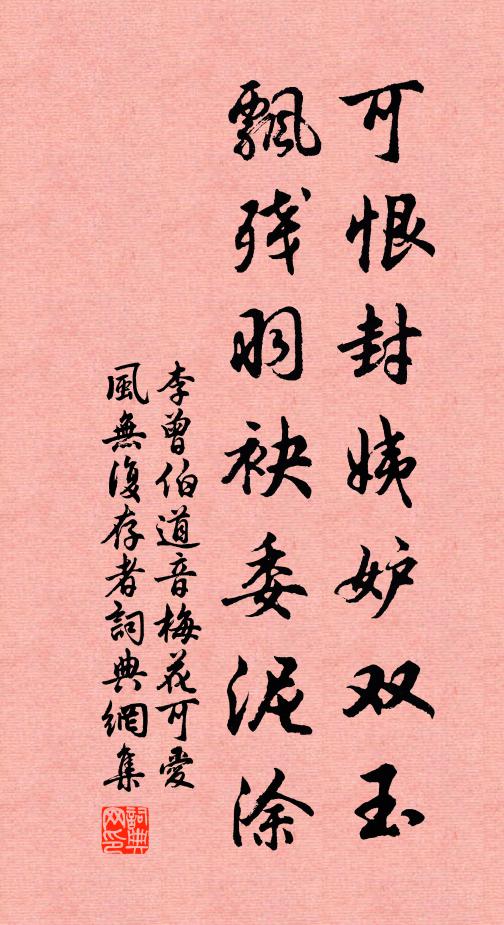 可恨封姨妒双玉
飘残羽袂委泥涂
李曾伯道音梅花可愛
風無復存者詞典網集
詞典网印